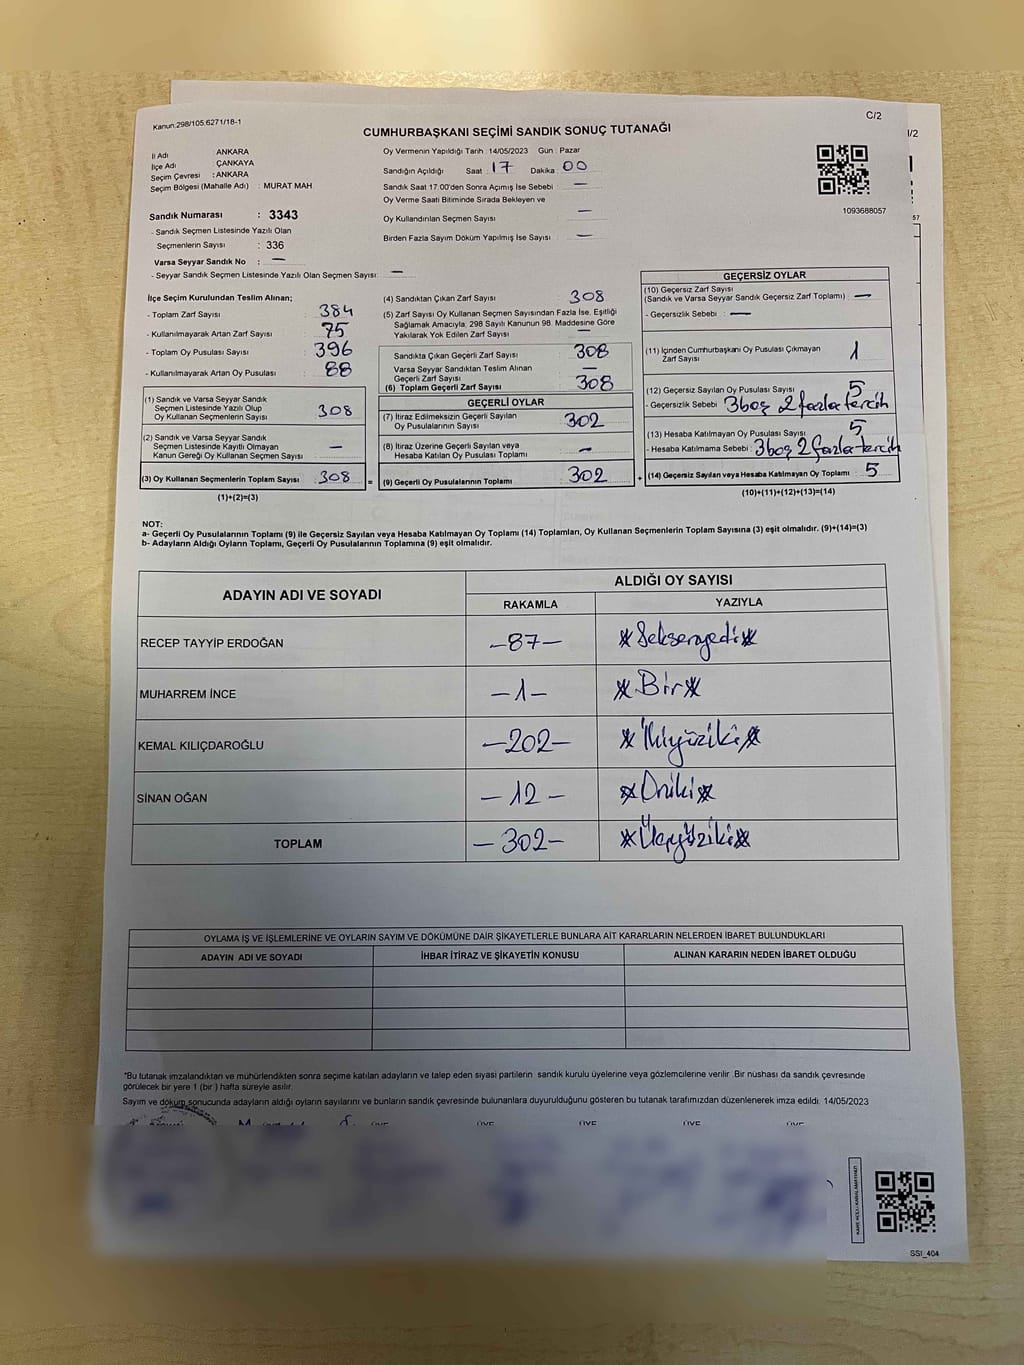 Kanun:298/105,6271/18-1
C/2
CUMHURBAŞKANI SEÇİMİ SANDIK SONUÇ TUTANAĞI
I/2
İl Adı : ANKARA
İlçe Adı : ÇANKAYA
Seçim Çevresi : ANKARA
Seçim Bölgesi (Mahalle Adı) : MURAT MAH
Sandık Numarası : 3343
- Sandık Seçmen Listesinde Yazılı Olan
Seçmenlerin Sayısı : 336
Varsa Seyyar Sandık No : —
- Seyyar Sandık Seçmen Listesinde Yazılı Olan Seçmen Sayısı: —
Oy Vermenin Yapıldığı Tarih : 14/05/2023 Gün : Pazar
Sandığın Açıldığı Saat : 17 Dakika : 00
Sandık Saat 17:00'den Sonra Açımış İse Sebebi : —
Oy Verme Saati Bitiminde Sırada Bekleyen ve
Oy Kullandırılan Seçmen Sayısı —
Birden Fazla Sayım Döküm Yapılmış İse Sayısı : —
1093688057
57
İlçe Seçim Kurulundan Teslim Alınan;
- Toplam Zarf Sayısı : 384
- Kullanılmayarak Artan Zarf Sayısı : 75
- Toplam Oy Pusulası Sayısı : 396
- Kullanılmayarak Artan Oy Pusulası : 88
(1) Sandık ve Varsa Seyyar Sandık
Seçmen Listesinde Yazılı Olup
Oy Kullanan Seçmenlerin Sayısı : 308
(2) Sandık ve Varsa Seyyar Sandık
Seçmen Listesinde Kayıtlı Olmayan
Kanun Gereği Oy Kullanan Seçmen Sayısı : —
(3) Oy Kullanan Seçmenlerin Toplam Sayısı : 308 =
(1)+(2)=(3)
(4) Sandıktan Çıkan Zarf Sayısı : 308
(5) Zarf Sayısı Oy Kullanan Seçmen Sayısından Fazla İse, Eşitliği
Sağlamak Amacıyla, 298 Sayılı Kanunun 98. Maddesine Göre
Yakılarak Yok Edilen Zarf Sayısı : —
Sandıkta Çıkan Geçerli Zarf Sayısı : 308
Varsa Seyyar Sandıktan Teslim Alınan
Geçerli Zarf Sayısı : —
(6) Toplam Geçerli Zarf Sayısı : 308
GEÇERLİ OYLAR
(7) İtiraz Edilmeksizin Geçerli Sayılan
Oy Pusulalarının Sayısı : 302
(8) İtiraz Üzerine Geçerli Sayılan veya
Hesaba Katılan Oy Pusulası Toplamı : —
(9) Geçerli Oy Pusulalarının Toplamı : 302 +
GEÇERSİZ OYLAR
(10) Geçersiz Zarf Sayısı
(Sandık ve Varsa Seyyar Sandık Geçersiz Zarf Toplamı) : —
- Geçersizlik Sebebi : —
(11) İçinden Cumhurbaşkanı Oy Pusulası Çıkmayan
Zarf Sayısı : 1
(12) Geçersiz Sayılan Oy Pusulası Sayısı : 5
- Geçersizlik Sebebi : 3boş 2 fazla tercih
(13) Hesaba Katılmayan Oy Pusulası Sayısı : 5
- Hesaba Katılmama Sebebi : 3boş 2 fazla tercih
(14) Geçersiz Sayılan veya Hesaba Katılmayan Oy Toplamı : 5
(10)+(11)+(12)+(13)=(14)
NOT:
a- Geçerli Oy Pusulalarının Toplamı (9) ile Geçersiz Sayılan veya Hesaba Katılmayan Oy Toplamı (14) Toplamları, Oy Kullanan Seçmenlerin Toplam Sayısına (3) eşit olmalıdır. (9)+(14)=(3)
b- Adayların Aldığı Oyların Toplamı, Geçerli Oy Pusulalarının Toplamına (9) eşit olmalıdır.
ADAYIN ADI VE SOYADI
ALDIĞI OY SAYISI
RAKAMLA YAZIYLA
RECEP TAYYİP ERDOĞAN —87— *Seksenyedi*
MUHARREM İNCE —1— *Bir*
KEMAL KILIÇDAROĞLU —202— *İkiyüziki*
SİNAN OĞAN —12— *Oniki*
TOPLAM —302— *Üçyüziki*
OYLAMA İŞ VE İŞLEMLERİNE VE OYLARIN SAYIM VE DÖKÜMÜNE DAİR ŞİKAYETLERLE BUNLARA AİT KARARLARIN NELERDEN İBARET BULUNDUKLARI
ADAYIN ADI VE SOYADI İHBAR İTİRAZ VE ŞİKAYETİN KONUSU ALINAN KARARIN NEDEN İBARET OLDUĞU
*Bu tutanak imzalandıktan ve mühürlendikten sonra seçime katılan adayların ve talep eden siyasi partilerin sandık kurulu üyelerine veya gözlemcilerine verilir. Bir nüshası da sandık çevresinde
görülecek bir yere 1 (bir) hafta süreyle asılır.
Sayım ve döküm sonucunda adayların aldığı oyların sayılarını ve bunların sandık çevresinde bulunanlara duyurulduğunu gösteren bu tutanak tarafımızdan düzenlenerek imza edildi. 14/05/2023
ÜYE ÜYE ÜYE ÜYE ÜYE
SSI_404